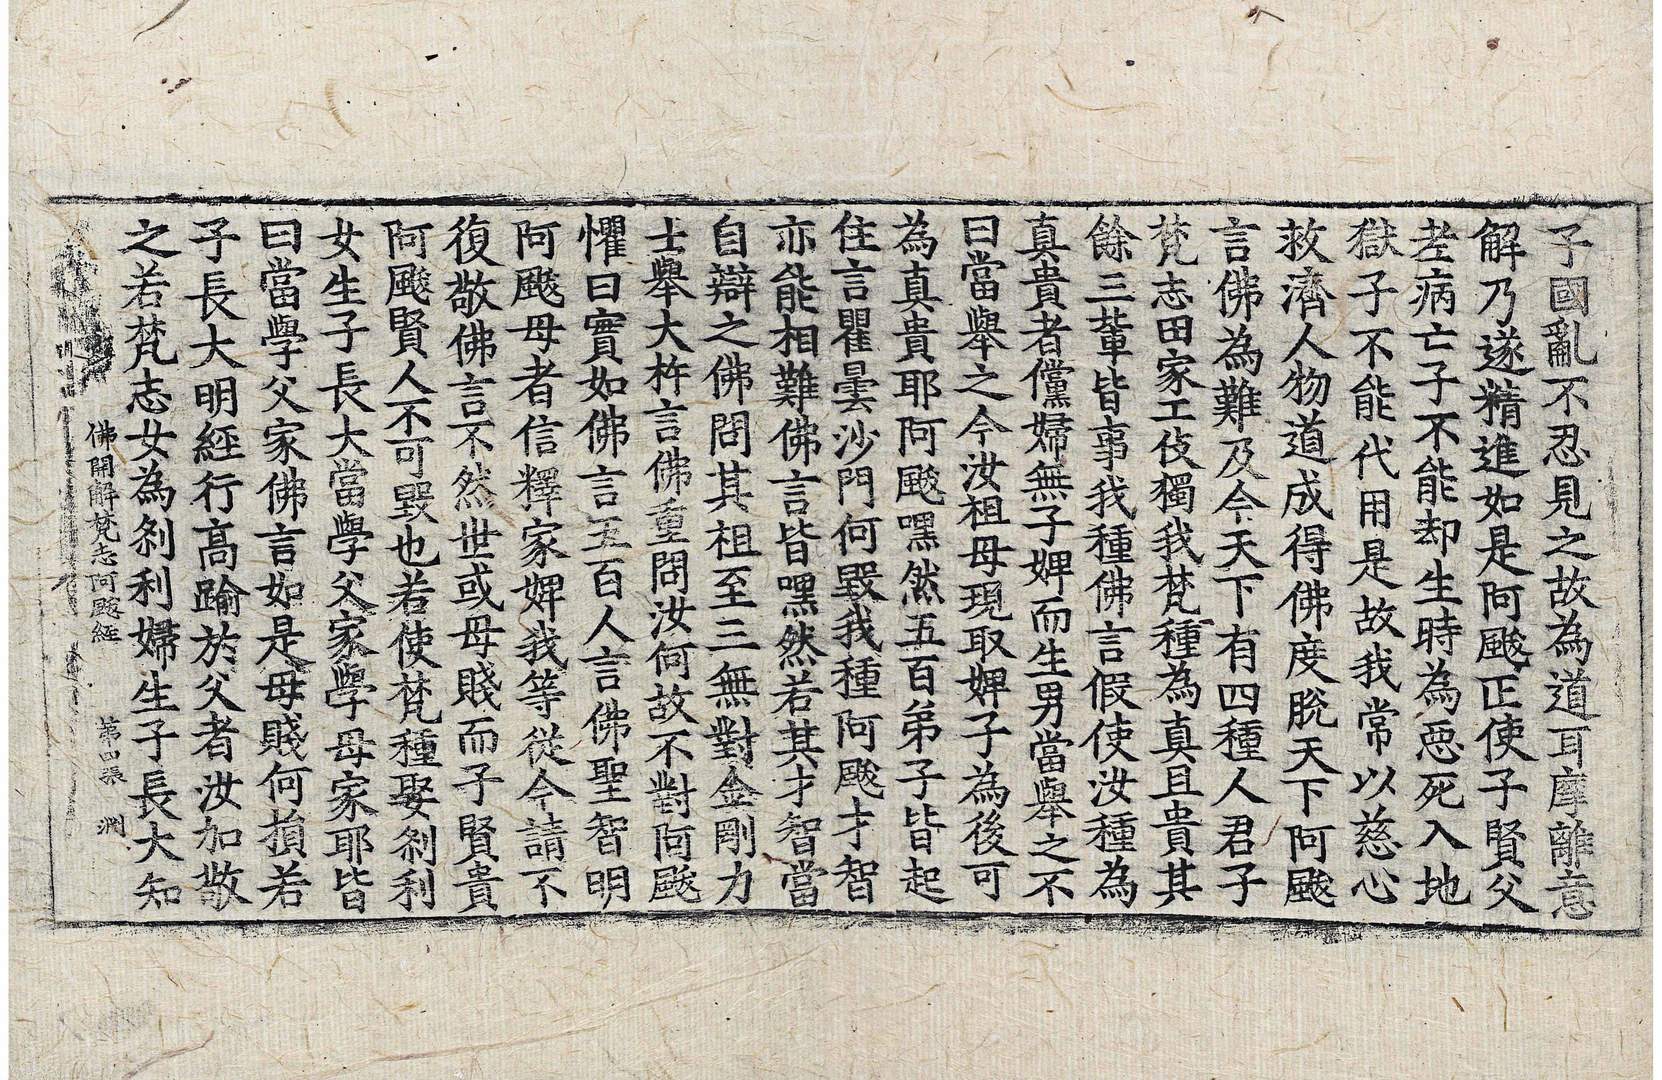 子國亂不忍見之故為道耳摩離意
解乃遂精進如是阿颰正使子賢父
老病亡子不能却生時為惡死入地
獄子不能代用是故我常以慈心
救濟人物道成得佛度脫天下阿颰
言佛為難及今天下有四種人君子
梵志田家工伎獨我梵種為真且貴其
餘三輩皆事我種佛言假使汝種為
真貴者儻婦無子婢而生男當舉之不
曰當舉之今汝祖母現取婢子為後可
為真貴耶阿颰嘿然五百弟子皆起
住言瞿曇沙門何毀我種阿颰才智
亦能相難佛言皆嘿然若其才智當
自辯之佛問其祖至三無對金剛力
士舉大杵言佛重問汝何故不對阿颰
懼曰實如佛言五百人言佛聖智明
阿颰母者信釋家婢我等從今請不
復敬佛言不然世或母賤而子賢貴
阿颰賢人不可毀也若使梵種娶剎利
女生子長大當學父家學母家耶皆
曰當學父家佛言如是母賤何損若
子長大明經行高踰於父者汝加敬
之若梵志女為剎利婦生子長大知
佛開解梵志阿颰經 第四張 淵